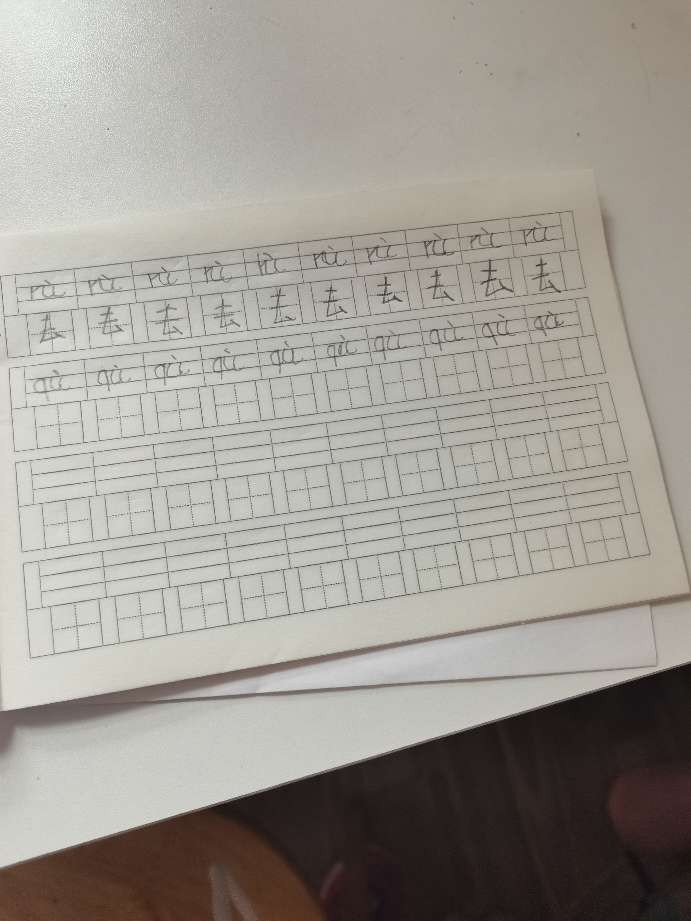 rù rù rù rù rù rù rù rù rù rù
去 去 去 去 去 去 去 去 去 去
qù qù qù qù qù qù qù qù qù qù